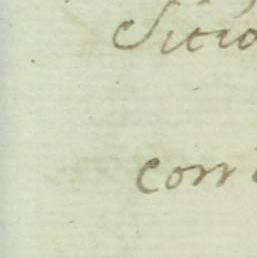 Sitio
corr